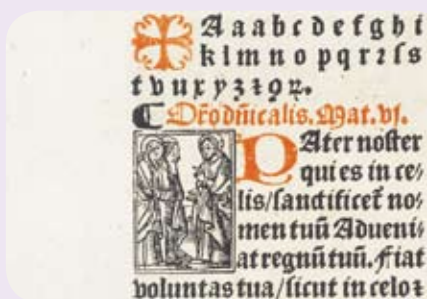 ✠ A a a b c d e f g h i
k l m n o p q r ꝛ ſ s
t v u x y z ꝫ ꝯ ꝝ.
¶ Or̃o dñicalis. Mat. vi.
PAter noſter
qui es in ce/
lis/ſanctificet̃ no/
men tuũ Adueni/
at regnũ tuũ. Fiat
voluntas tua/ſicut in celo ⁊